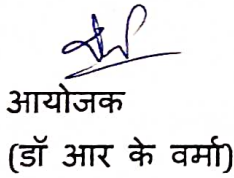 आयोजक
(डॉ आर के वर्मा)